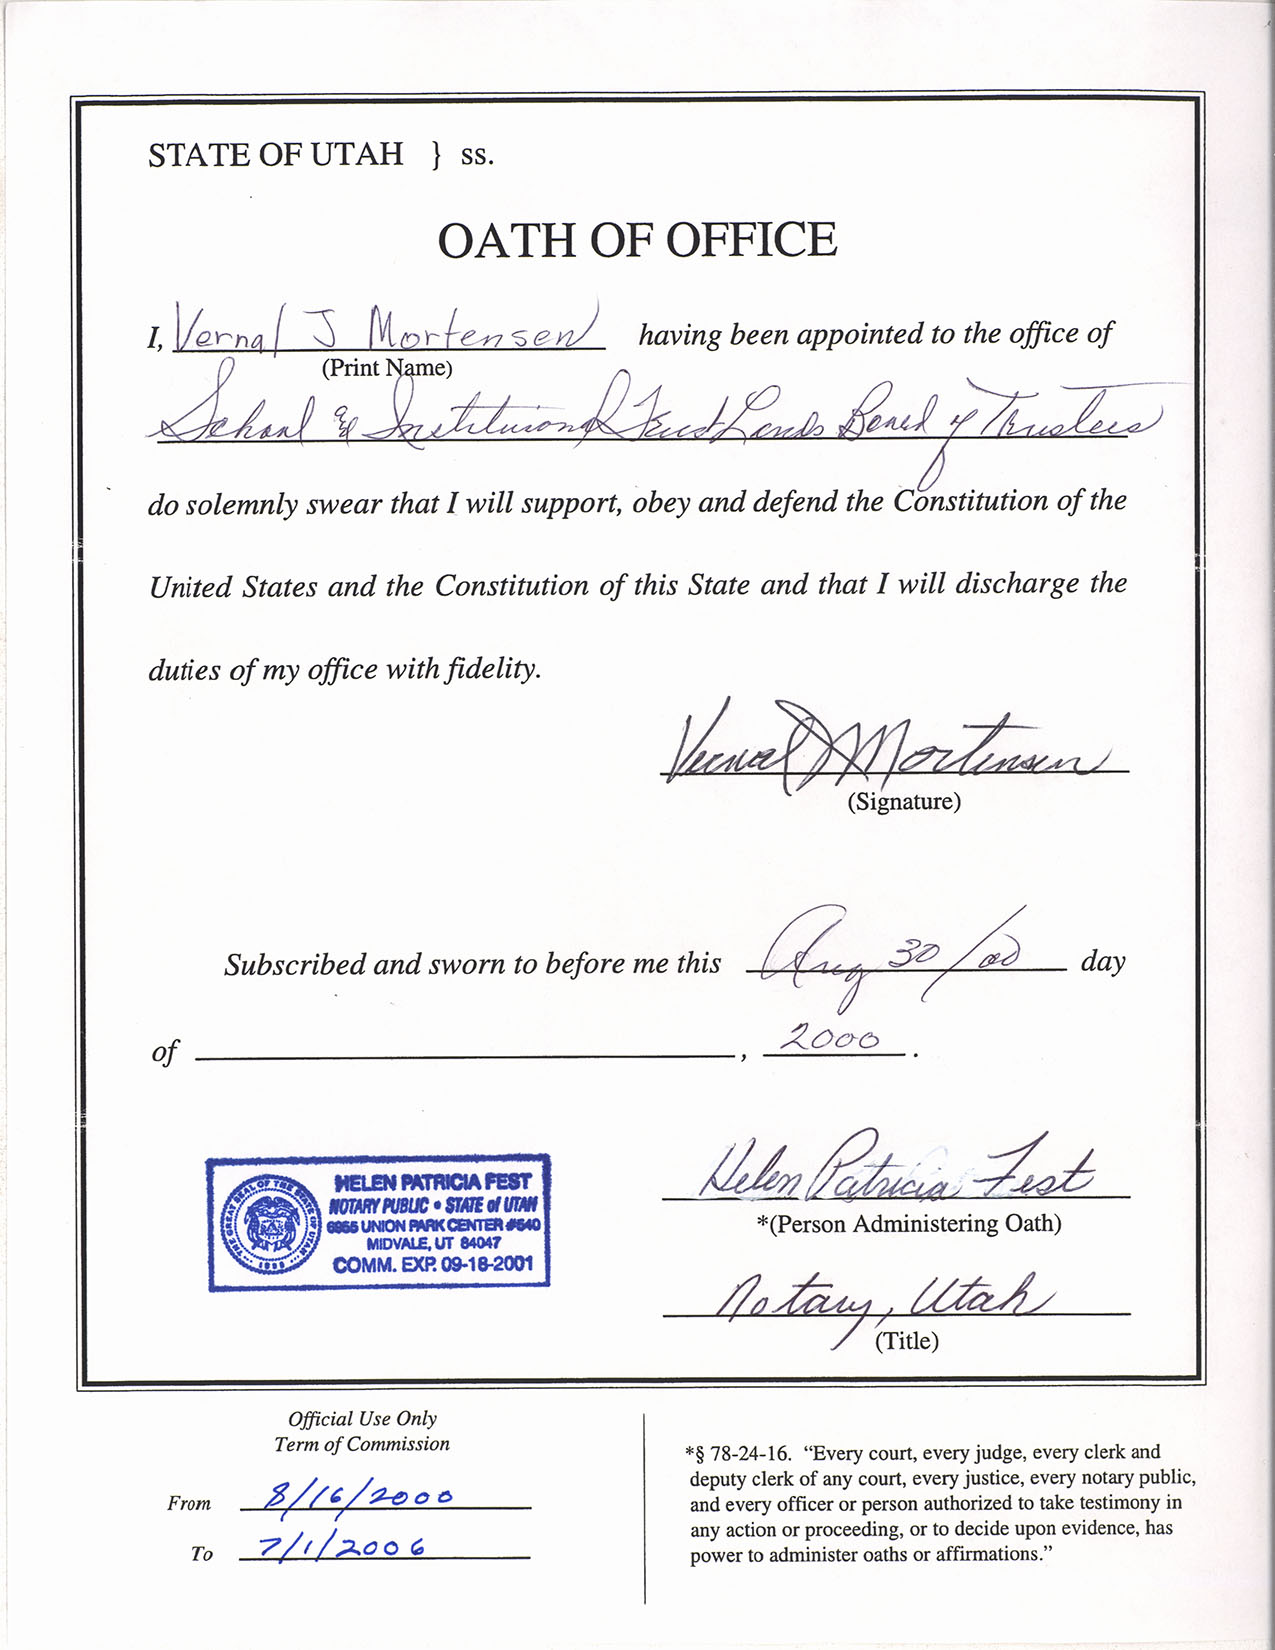 STATE OF UTAH } ss.
OATH OF OFFICE
I, Vernal J Mortensen having been appointed to the office of
(Print Name)
School & Institutional Trust Lands Board of Trustees
do solemnly swear that I will support, obey and defend the Constitution of the
United States and the Constitution of this State and that I will discharge the
duties of my office with fidelity.
Vernal J Mortensen
(Signature)
Subscribed and sworn to before me this Aug 30/00 day
of , 2000.
HELEN PATRICIA FEST
NOTARY PUBLIC • STATE of UTAH
6955 UNION PARK CENTER #540
MIDVALE, UT 84047
COMM. EXP. 09-18-2001
THE GREAT SEAL OF THE STATE OF UTAH
1896
Helen Patricia Fest
*(Person Administering Oath)
Notary, Utah
(Title)
Official Use Only
Term of Commission
From 8/16/2000
To 7/1/2006
*§ 78-24-16. “Every court, every judge, every clerk and
deputy clerk of any court, every justice, every notary public,
and every officer or person authorized to take testimony in
any action or proceeding, or to decide upon evidence, has
power to administer oaths or affirmations.”